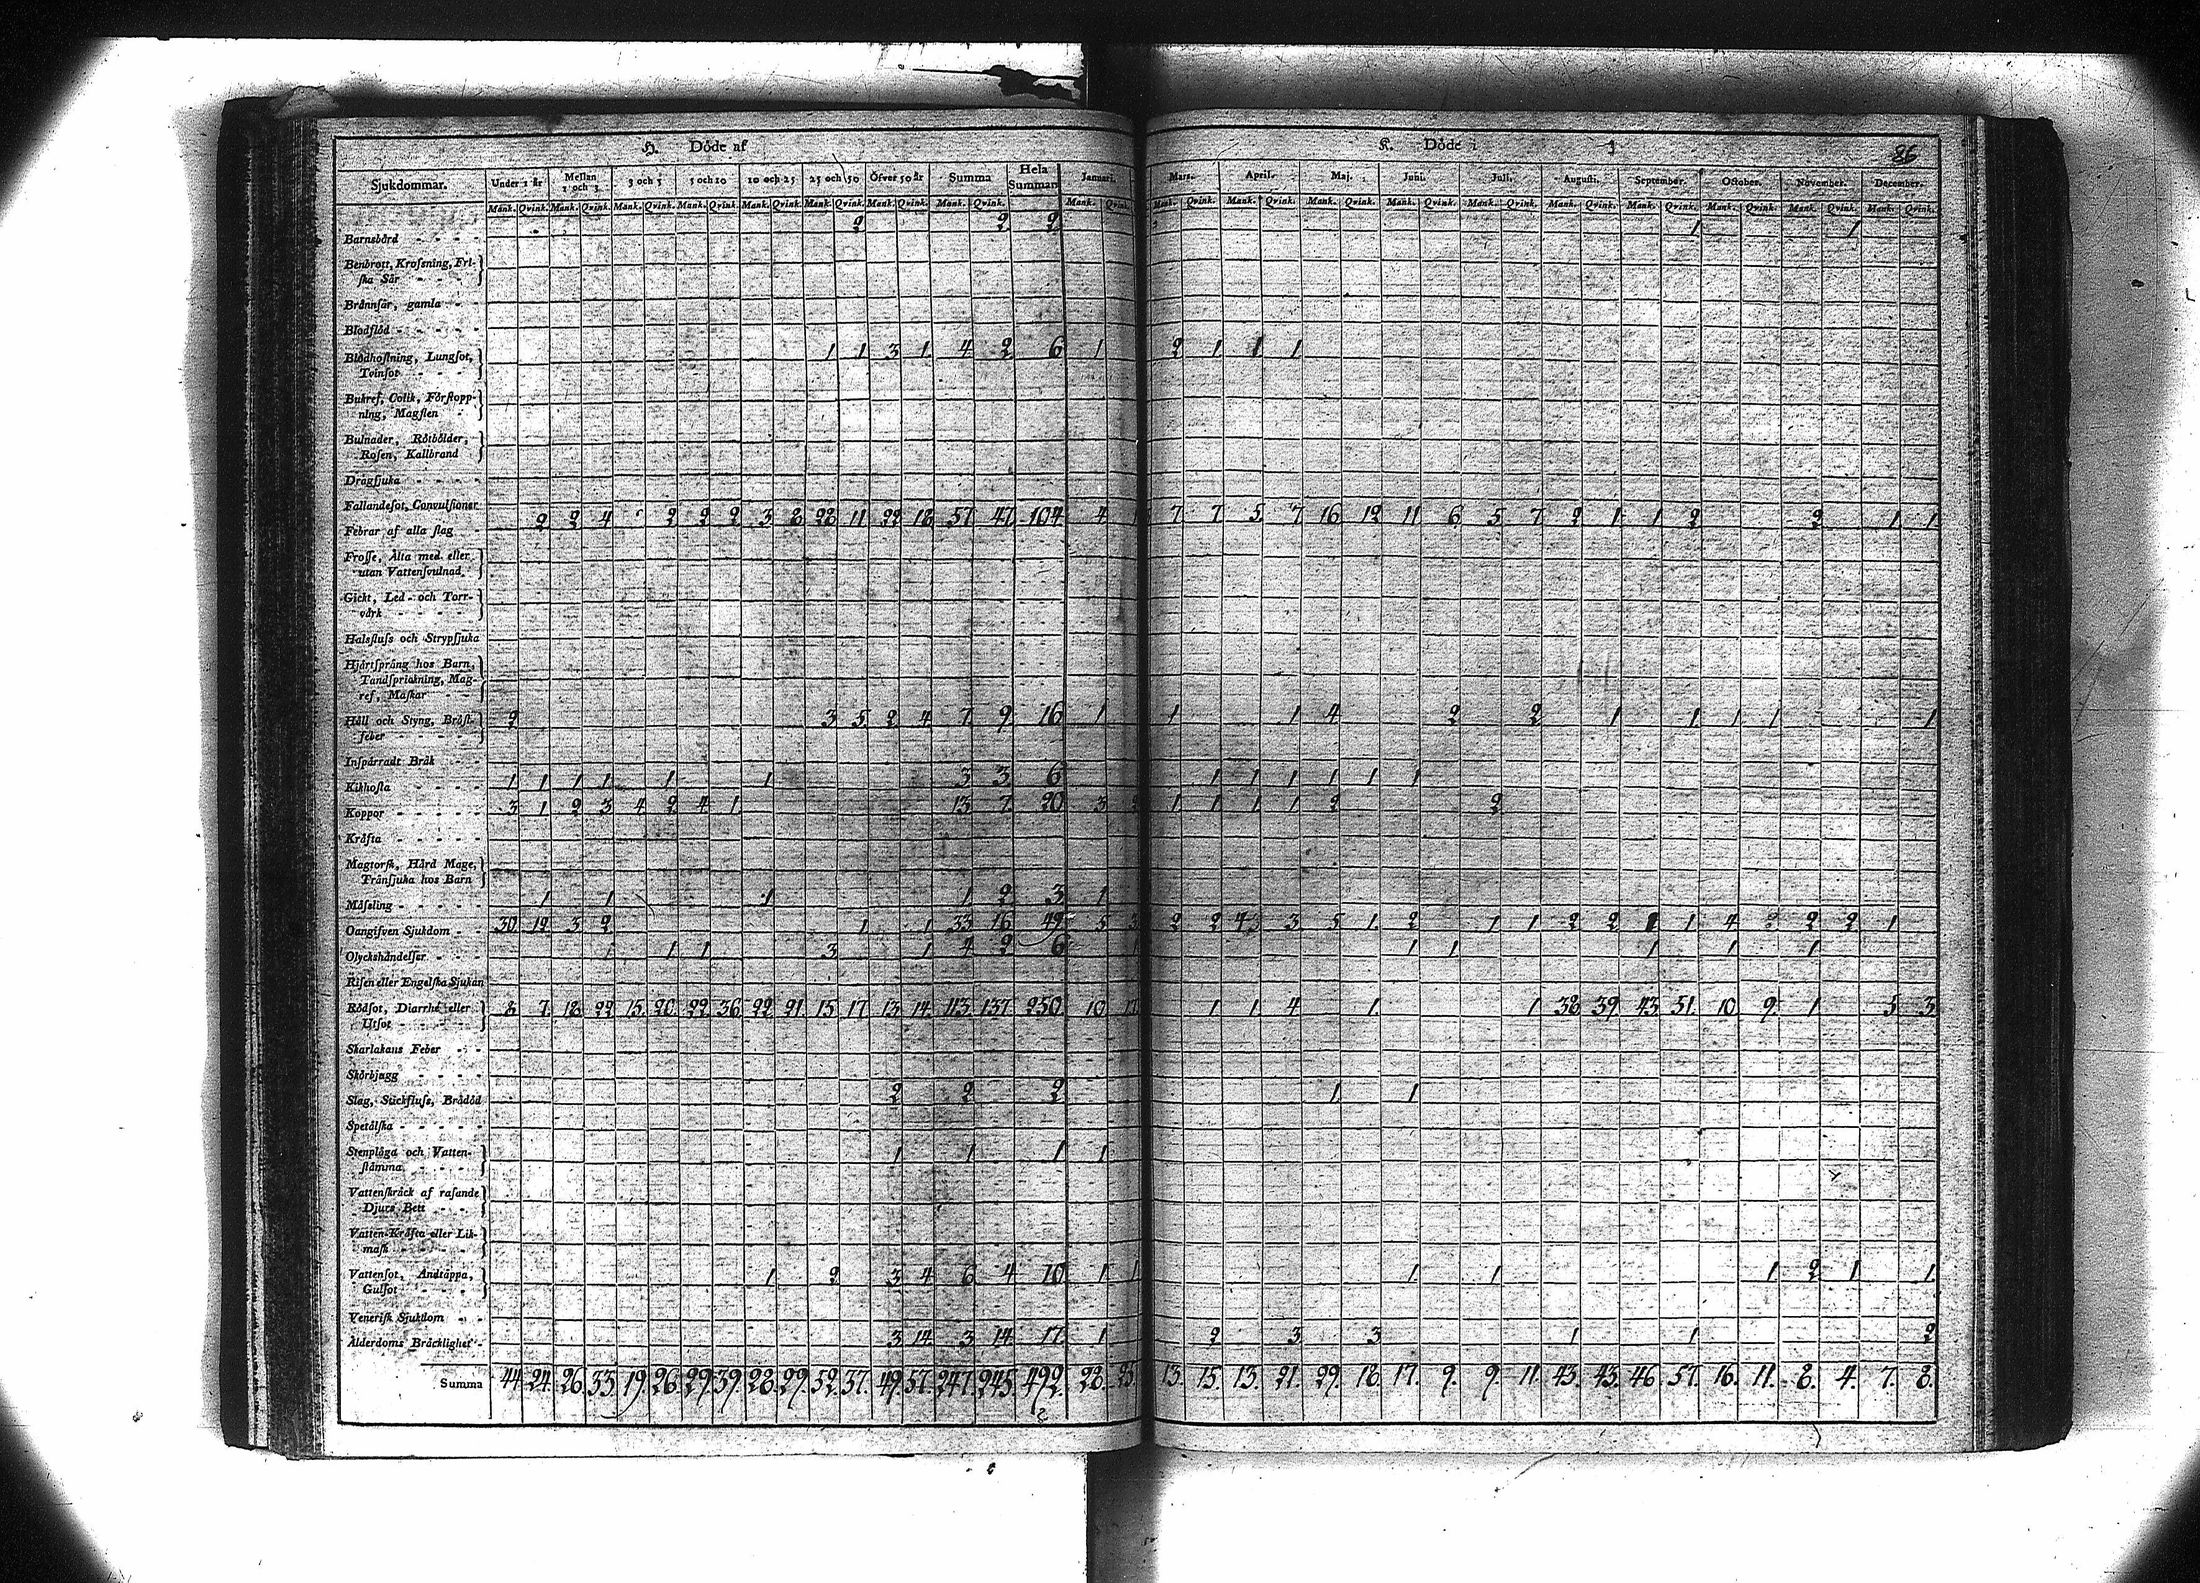 H. Döde af
K. Döde i
86
Sjukdommar. Under 1 år Mellan 1 och 3. 3 och 5 5 och 10 10 och 25 25 och 50 Öfver 50 år Summa Hela Summan Januari. Mars. April. Maj. Juni. Juli. Augusti. September. October. November. December.
Mank. Qvink. Mank. Qvink. Mank. Qvink. Mank. Qvink. Mank. Qvink. Mank. Qvink. Mank. Qvink. Mank. Qvink. Mank. Qvink. Mank. Qvink. Mank. Qvink. Mank. Qvink. Mank. Qvink. Mank. Qvink. Mank. Qvink. Mank. Qvink. Mank. Qvink. Mank. Qvink. Mank. Qvink.
Barnsbörd 2 2 2 1 1
Benbrott, Krossning, Fri-
ska Sår
Brännsår, gamla
Blodflöd
Blodhostning, Lungsot, 1 1 3 1 4 2 6 1 2 1 1 1
Tvinsot
Bukref, Colik, Förstopp-
ning, Magsten
Bulnader, Rötbölder,
Rosen, Kallbrand
Drägsjuka
Fallandesot, Convulsioner
Febrar af alla slag 2 2 4 2 2 2 3 8 22 11 22 18 57 47 104 4 1 7 7 5 7 16 12 11 6 5 7 2 1 1 2 2 1 1
Frosse, Älta med eller
utan Vattensvulnad
Gickt, Led- och Torr-
värk
Halsfluss och Strypsjuka
Hjärtsprång hos Barn,
Tandsprickning, Mag-
ref, Maskar
Håll och Styng, Bröst- 2 3 5 2 4 7 9 16 1 1 1 4 2 2 1 1 1 1 1
feber
Inspärradt Bråk
Kikhosta 1 1 1 1 1 1 3 3 6 1 1 1 1 1 1
Koppor 3 1 2 3 4 2 4 1 13 7 20 3 2 1 1 1 1 2 2
Kräfta
Magtorsk, Hård Mage,
Tränsjuka hos Barn
Mässling 1 1 1 1 2 3 1
Oangifven Sjukdom 30 12 3 2 1 1 33 16 49 5 3 2 2 3 5 1 2 1 1 2 2 1 4 2 2 1
Olyckshändelser 1 1 1 3 1 4 2 6 1 1 1 1 1 1
Risen eller Engelska Sjukan
Rödsot, Diarrhé eller 8 7 18 22 15 20 22 36 22 21 15 17 13 14 113 137 250 10 1 1 4 1 1 38 39 43 51 10 9 1 5 3
Utsot
Skarlakans Feber
Skörbjugg
Slag, Stickfluss, Brådöd 2 2 2 1 1
Spetälska
Stenplåga och Vatten- 1 1 1 1
stämma
Vattenskräck af rasande
Djurs Bett
Vatten-Kräfta eller Lik-
mask
Vattensot, Andtäppa, 1 2 3 4 6 4 10 1 1 1 1 1 2 1 1
Gulsot
Venerisk Sjukdom
Ålderdoms Bräcklighet 3 14 3 14 17 1 2 3 3 1 1 2
Summa 44 24 26 33 19 26 29 39 28 29 52 37 49 57 247 245 492 28 25 13 15 13 21 29 18 17 9 9 11 43 43 46 57 16 11 8 4 7 8